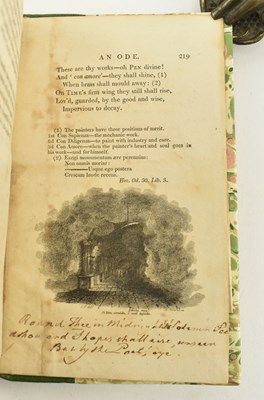 AN ODE. 219
These are thy works—oh PEN divine!
And 'con amore'—they shall shine, (1)
When brass shall mould away: (2)
On TIME's fleet wing they still shall rise,
Lov'd, guarded, by the good and wise,
Impervious to decay.
(1) The painters have three positions of merit.
1st Con Sapienza—the mechanic work.
2d Con Diligenza—to paint with industry and care.
3d Con Amore—when the painter's heart and soul goes in
his work—and for himself.
(1) Exegi monumentum ære perennius:
Non omnis moriar:
Usque ego postera
Crescam laude recens.
Hor. Od. 30, Lib. 3,
Round Thee in
and Shapes shall
by the eye